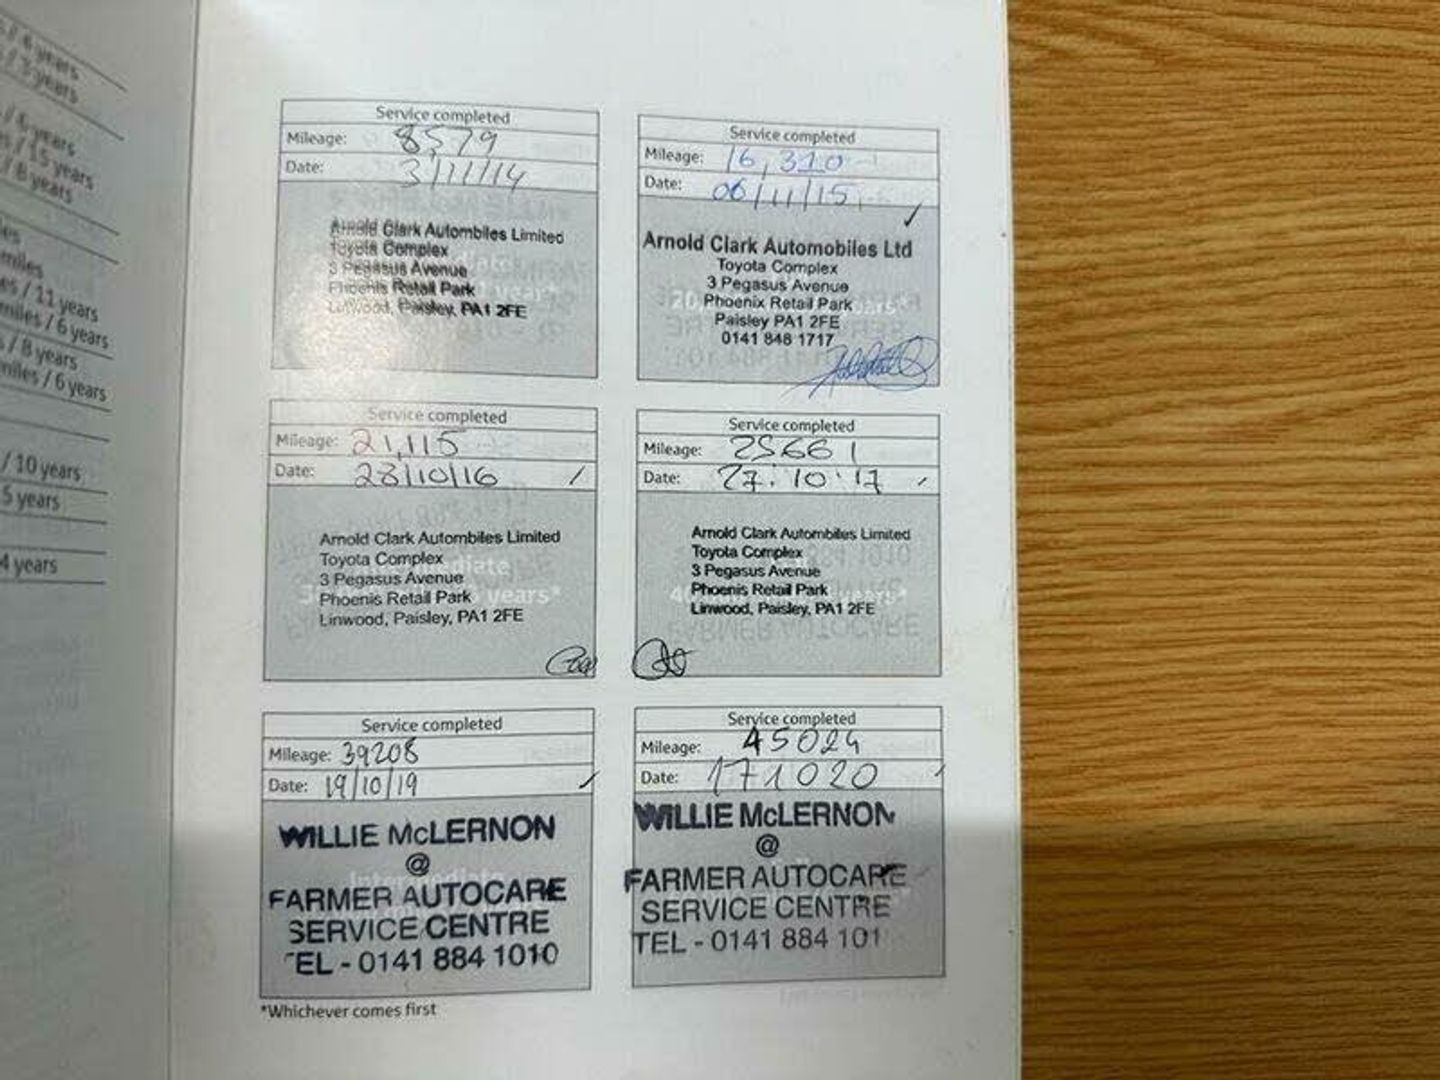 / 6 years
/ 5 years
/ 6 years
/ 15 years
/ 8 years
miles
/ 11 years
miles / 6 years
/ 8 years
miles / 6 years
/ 10 years
5 years
4 years
Service completed
Mileage: 8579
Date: 3/11/14
Arnold Clark Autombiles Limited
Toyota Complex
3 Pegasus Avenue
Phoenis Retail Park
Linwood, Paisley, PA1 2FE
Service completed
Mileage: 16,310
Date: 06/11/15
Arnold Clark Automobiles Ltd
Toyota Complex
3 Pegasus Avenue
Phoenix Retail Park
Paisley PA1 2FE
0141 848 1717
Service completed
Mileage: 21,115
Date: 28/10/16
Arnold Clark Autombiles Limited
Toyota Complex
3 Pegasus Avenue
Phoenis Retail Park
Linwood, Paisley, PA1 2FE
Service completed
Mileage: 25661
Date: 27.10.17
Arnold Clark Autombiles Limited
Toyota Complex
3 Pegasus Avenue
Phoenis Retail Park
Linwood, Paisley, PA1 2FE
Service completed
Mileage: 39208
Date: 19/10/19
WILLIE McLERNON
@
FARMER AUTOCARE
SERVICE CENTRE
TEL - 0141 884 1010
Service completed
Mileage: 45024
Date: 171020
WILLIE McLERNON
@
FARMER AUTOCARE
SERVICE CENTRE
TEL - 0141 884 101
*Whichever comes first